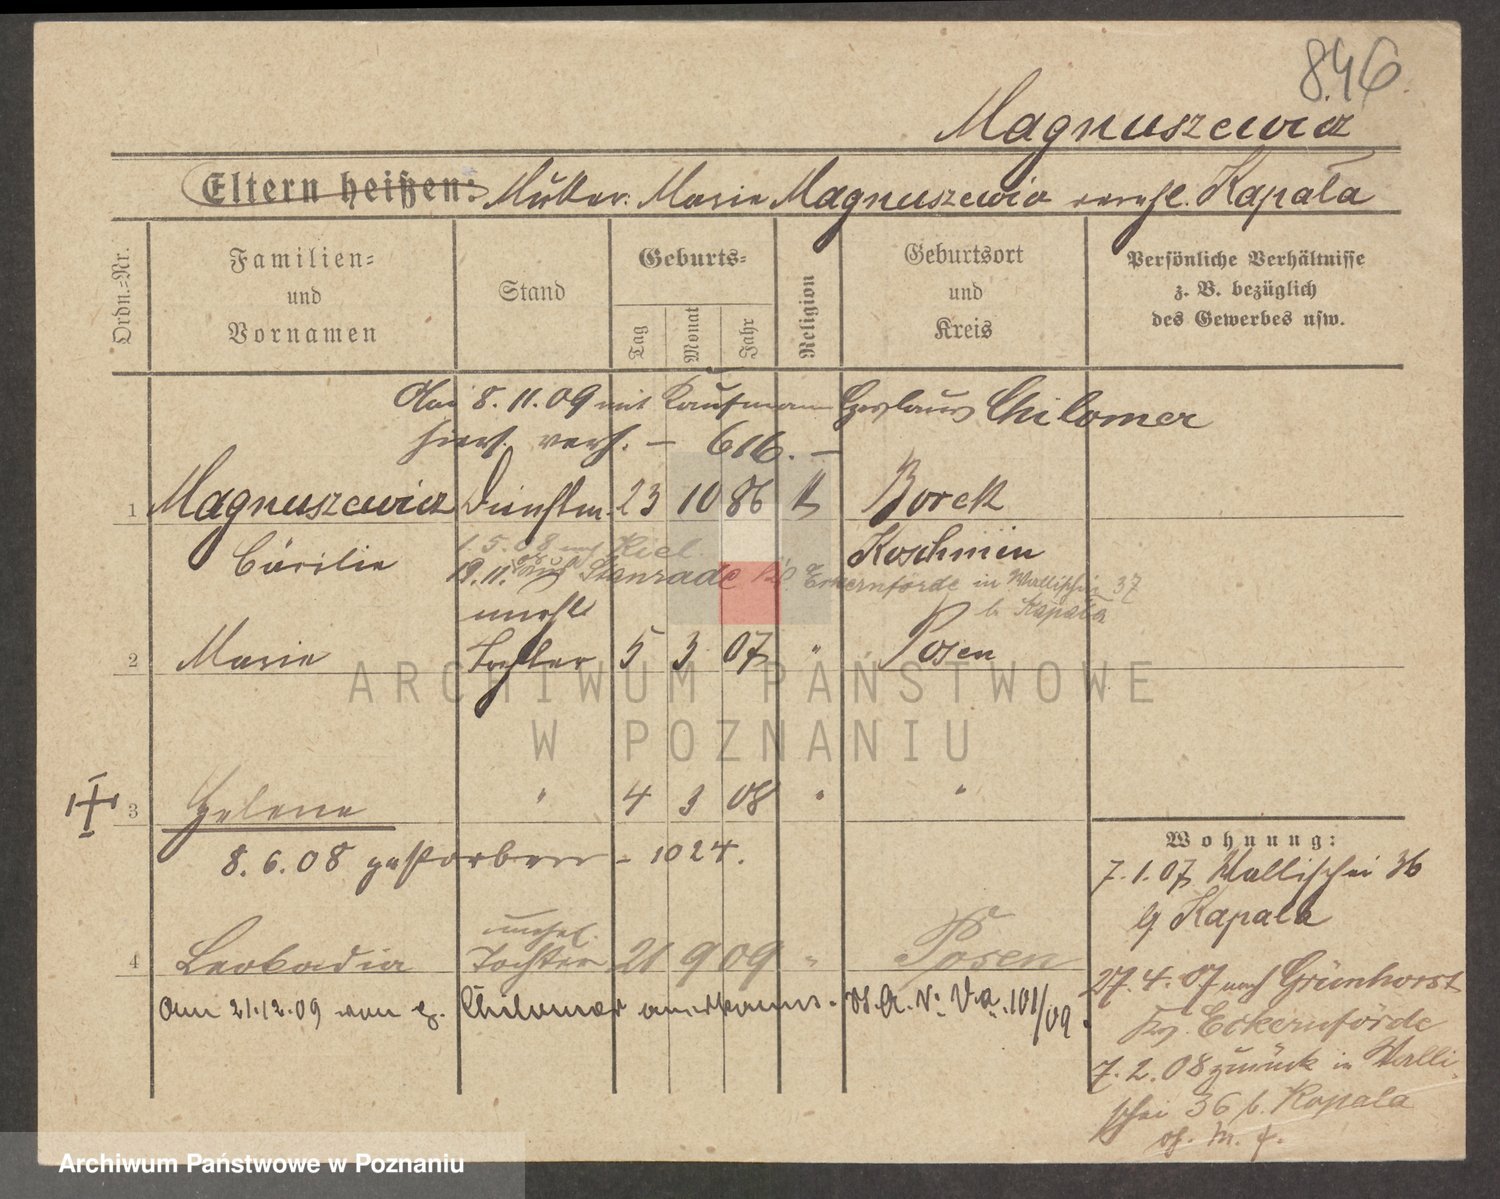 846
Magnuszewicz
Eltern heißen: Mutter: Marie Magnuszewicz verehl. Kapala
Ordn.-Nr.
Familien-
und
Vornamen
Stand
Geburts-
Tag
Monat
Jahr
Religion
Geburtsort
und
Kreis
Persönliche Verhältnisse
z. B. bezüglich
des Gewerbes usw.
Am 8.11.09 mit Kaufmann Chilomer
hier verh. – 616. –
1 Magnuszewicz Dienstm. 23 10 86 k Borek
Cäcilie Koschmin
1.5.08 auf Kiel
19.11. Stenrade Eckernförde in Wallischei 37
b. Kapala
unehl
2 Marie Tochter 5 3 07 " Posen
3 Helene " 4 3 08 " "
8.6.08 gestorben – 1024.
unehel.
4 Leokadia Tochter 21 9 09 " Posen
Am 21.12.09 von Chilomer anerkannt. 101/09.
Wohnung:
7.1.07 Wallischei 36
b Kapala
27.4.07 nach Grünhorst
Eckernförde
7.2.08 zurück in Walli-
schei 36 b. Kapala
ARCHIWUM PAŃSTWOWE
W POZNANIU
Archiwum Państwowe w Poznaniu